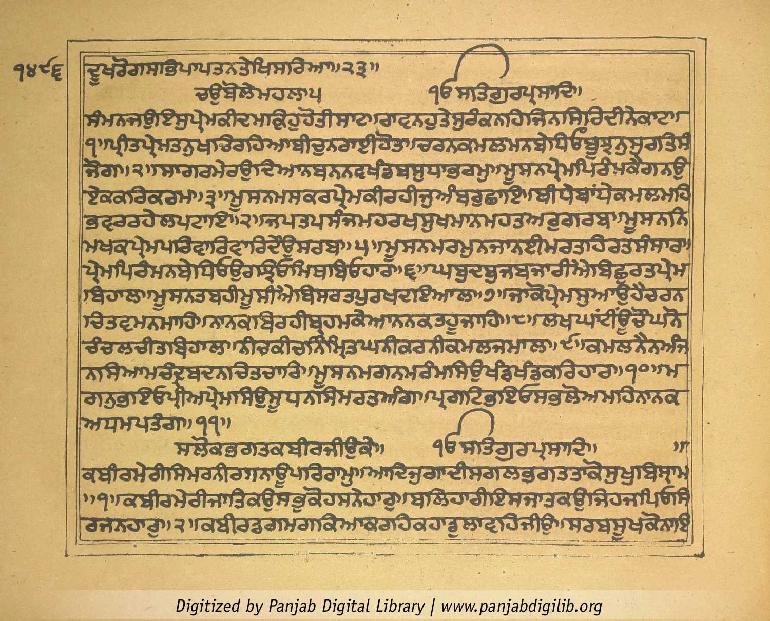 ੧੪੯੬
ਦੂਖਰੋਗਸਭਿਪਾਪਤਨਤੇਖਿਸਰਿਆ॥੨੩॥
ਚਉਬੋਲੇਮਹਲਾ੫ ੴਸਤਿਗੁਰਪ੍ਰਸਾਦਿ॥
ਸੰਮਨਜਉਇਸੁਪ੍ਰੇਮਕੀਦਮਕ੍ਯਿਹੁਹੋਤੀਸਾਟ॥ਰਾਵਨਹੁਤੇਸੁਰੰਕਨਹਿਜਿਨਸਿਰਿਦੀਨੇਕਾਟ॥
੧॥ਪ੍ਰੀਤਿਪ੍ਰੇਮਤਨੁਖਚਿਰਹਿਆਬੀਚੁਨਰਾਈਹੋਤ॥ਚਰਨਕਮਲਮਨੁਬੇਧਿਓਬੂਝਨੁਸੁਰਤਿਸੰ
ਜੋਗ॥੨॥ਸਾਗਰਮੇਰਉਦਿਆਨਬਨਨਵਖੰਡਬਸੁਧਾਭਰਮ॥ਮੂਸਨਪ੍ਰੇਮਪਿਰੰਮਕੈਗਨਉ
ਏਕਕਰਿਕਰਮ॥੩॥ਮੂਸਨਮਸਕਰਪ੍ਰੇਮਕੀਰਹੀਜੁਅੰਬਰੁਛਾਇ॥ਬੀਧੇਬਾਂਧੇਕਮਲਮਹਿ
ਭਵਰਰਹੇਲਪਟਾਇ॥੪॥ਜਪਤਪਸੰਜਮਹਰਖਸੁਖਮਾਨਮਹਤਅਰੁਗਰਬ॥ਮੂਸਨਨਿ
ਮਖਕਪ੍ਰੇਮਪਰਿਵਾਰਿਵਾਰਿਦੇਂਉਸਰਬ॥੫॥ਮੂਸਨਮਰਮੁਨਜਾਨਈਮਰਤਹਿਰਤਸੰਸਾਰ॥
ਪ੍ਰੇਮਪਿਰੰਮਨਬੇਧਿਓਉਰਝਿਓਮਿਥਬਿਓਹਾਰ॥੬॥ਘਬੁਦਬੁਜਬਜਾਰੀਐਬਿਛੁਰਤਪ੍ਰੇਮ
ਬਿਹਾਲ॥ਮੂਸਨਤਬਹੀਮੂਸੀਐਬਿਸਰਤਪੁਰਖਦਇਆਲ॥੭॥ਜਾਕੋਪ੍ਰੇਮਸੁਆਉਹੈਚਰਨ
ਚਿਤਵਮਨਮਾਹਿ॥ਨਾਨਕਬਿਰਹੀਬ੍ਰਹਮਕੇਆਨਨਕਤਹੂਜਾਹਿ॥੮॥ਲਖਘਾਟੀਂਊਚੌਘਨੋ
ਚੰਚਲਚੀਤਬਿਹਾਲ॥ਨੀਚਕੀਚਨਿਮ੍ਰਿਤਘਨੀਕਰਨੀਕਮਲਜਮਾਲ॥੯॥ਕਮਲਨੈਨਅੰਜ
ਨਸਿਆਮਚੰਦ੍ਰਬਦਨਚਿਤਚਾਰ॥ਮੂਸਨਮਗਨਮਰੰਮਸਿਉਖੰਡਖੰਡਕਰਿਹਾਰ॥੧੦॥ਮ
ਗਨੁਭਇਓਪ੍ਰਿਅਪ੍ਰੇਮਸਿਉਸੂਧਨਸਿਮਰਤਅੰਗ॥ਪ੍ਰਗਟਿਭਇਓਸਭਲੋਅਮਹਿਨਾਨਕ
ਅਧਮਪਤੰਗ॥੧੧॥
ਸਲੋਕਭਗਤਕਬੀਰਜੀਉਕੇ॥ ੴਸਤਿਗੁਰਪ੍ਰਸਾਦਿ॥ ॥
ਕਬੀਰਮੇਰੀਸਿਮਰਨੀਰਸਨਾਊਪਰਿਰਾਮੁ॥ਆਦਿਜੁਗਾਦੀਸਗਲਭਗਤਤਾਕੋਸੁਖੁਬਿਸ੍ਰਾਮ
॥੧॥ਕਬੀਰਮੇਰੀਜਾਤਿਕਉਸਭੁਕੋਹਸਨੇਹਾਰੁ॥ਬਲਿਹਾਰੀਇਸਜਾਤਕਉਜਿਹਜਪਿਓਸਿ
ਰਜਨਹਾਰੁ॥੨॥ਕਬੀਰਡਗਮਗਕਿਆਕਰਹਿਕਹਾਡੁਲਾਵਹਿਜੀਉ॥ਸਰਬਸੂਖਕੋਨਾਇ
Digitized by Panjab Digital Library | www.panjabdigilib.org